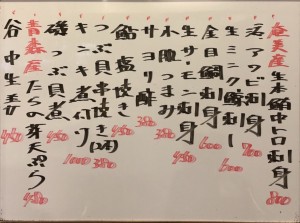 奄美産 生本鮪中トロ刺身 800
活アワビ刺身 800
生ミンク鯨刺身 600
金目鯛刺身 600
生サーモン刺身 450
小鰭つまみ 380
サヨリ酢 380
鮎塩焼き 450
つぶ貝串焼き(2本) 380
キンキ煮付け 1000
磯つぶ貝煮 450
青森産 たらの芽天ぷら 450
谷中生姜 450